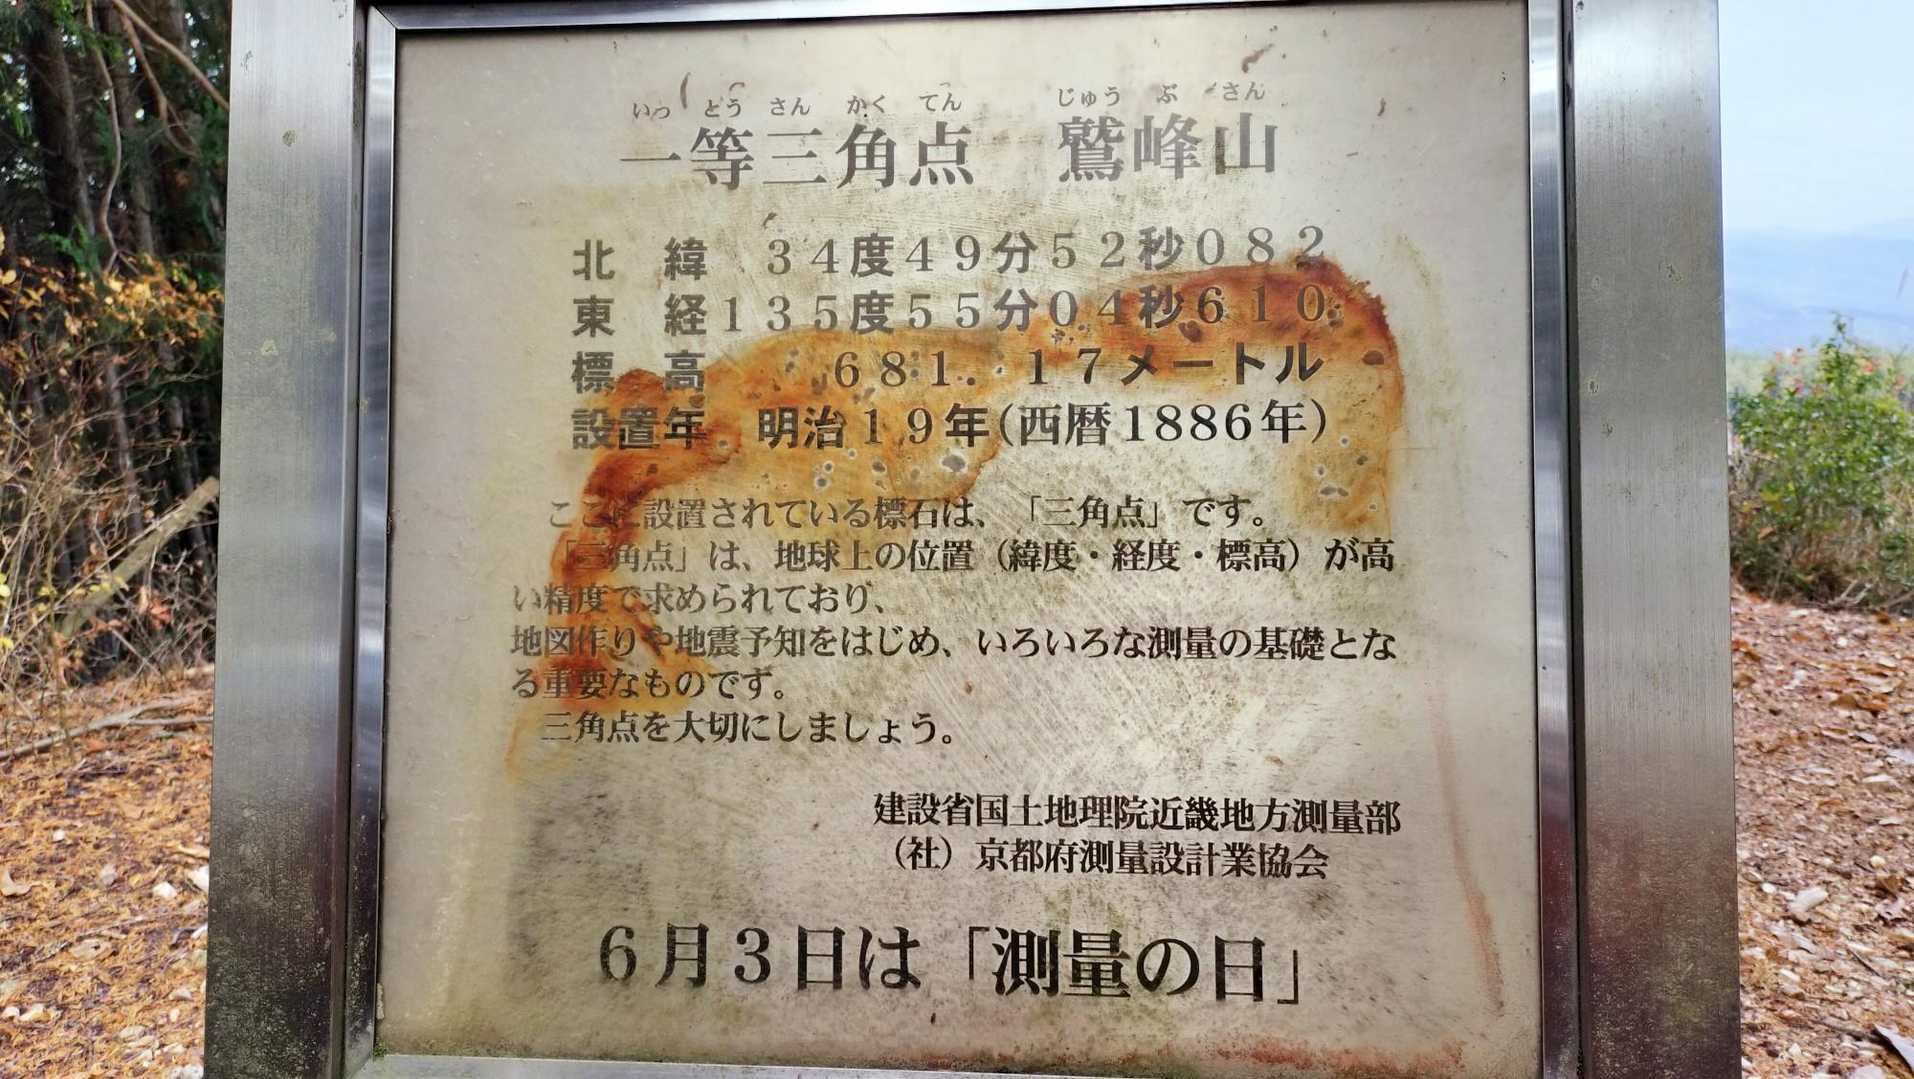 いっとうさんかくてん　じゅうぶさん
一等三角点　鷲峰山
北　緯　３４度４９分５２秒０８２
東　経１３５度５５分０４秒６１０
標　高　　　６８１．１７メートル
設置年　明治１９年(西暦1886年)
ここに設置されている標石は、「三角点」です。
「三角点」は、地球上の位置（緯度・経度・標高）が高
い精度で求められており、
地図作りや地震予知をはじめ、いろいろな測量の基礎とな
る重要なものです。
三角点を大切にしましょう。
建設省国土地理院近畿地方測量部
（社）京都府測量設計業協会
６月３日は「測量の日」